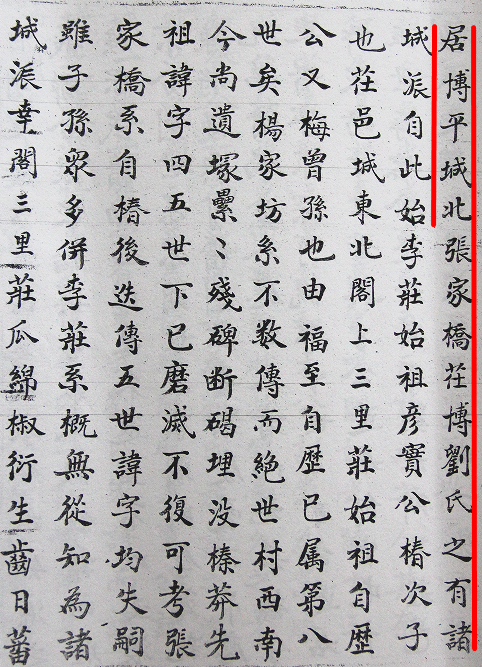 居博平城北張家橋茌博劉氏之有諸
城派自此始李莊始祖彦實公椿次子
也茌邑城東北閣上三里莊始祖自歷
公又梅曾孫也由福至自歷已属第八
世矣楊家坊系不数傳而絶世村西南
今尚遺塚纍〻殘碑断碣埋没榛莽先
祖諱字四五世下已磨滅不復可考張
家橋系自椿後迭傳五世諱字均失嗣
雖子孫衆多併李莊系概無從知為諸
城派幸閣三里莊瓜綿椒衍生齒日蕃